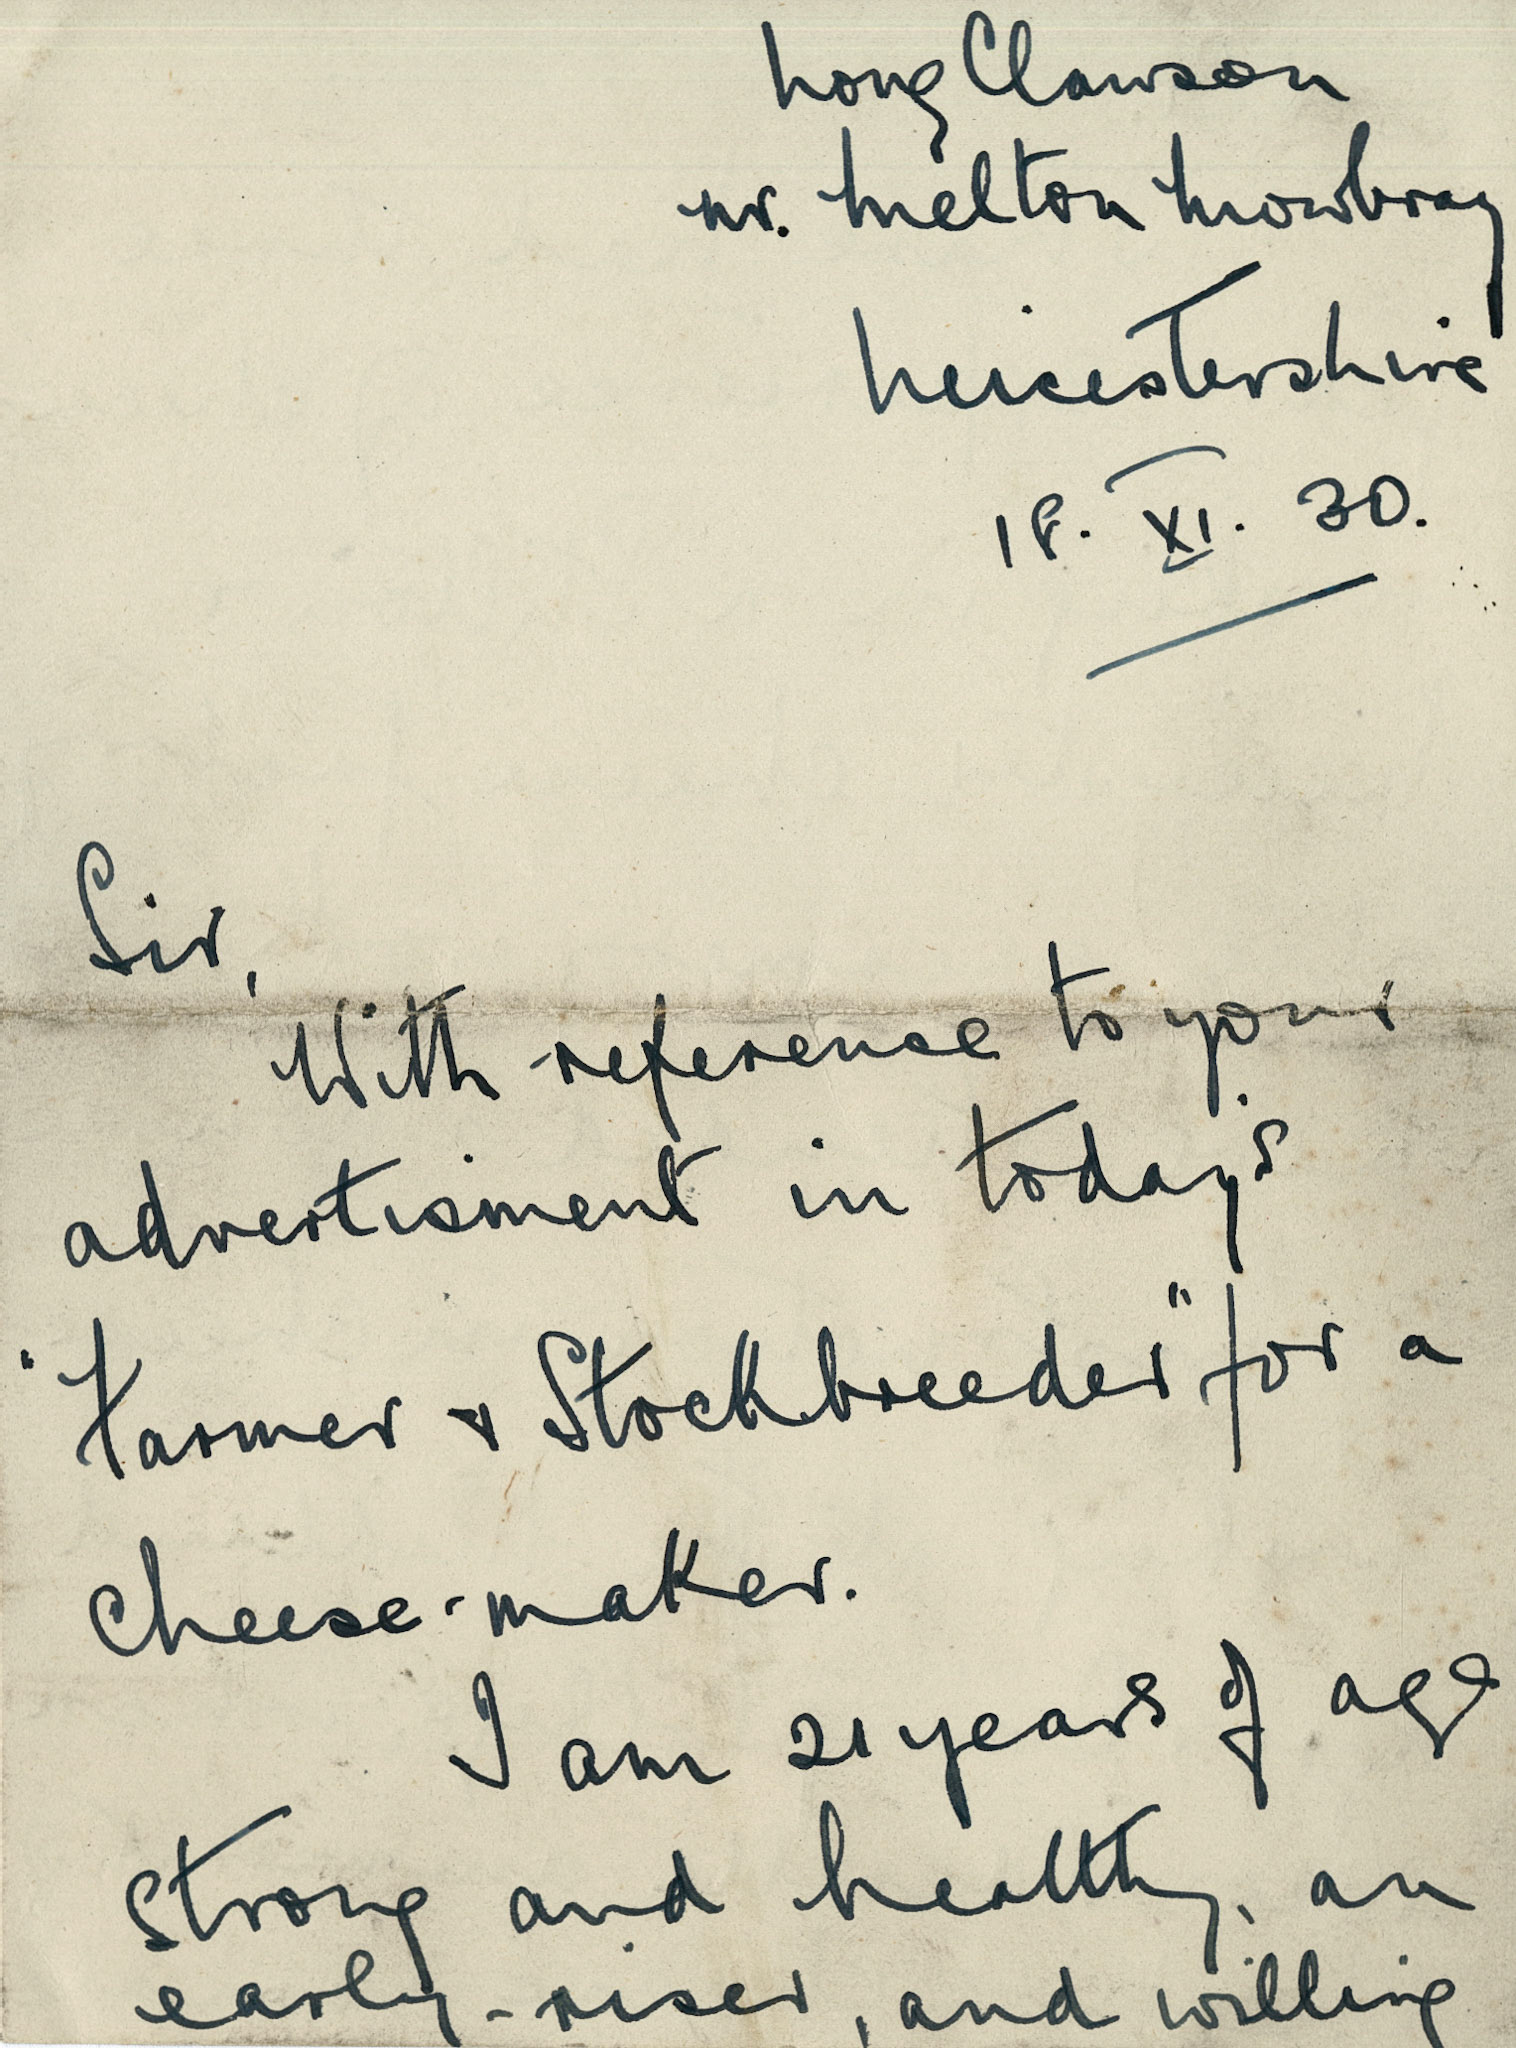 Long Clawson
nr. Melton Mowbray
Leicestershire
18. XI. 30.
Sir,
With reference to your
advertisment in today's
"Farmer & Stockbreeder" for a
cheese-maker.
I am 21 years of age
strong and healthy, an
early-riser, and willing